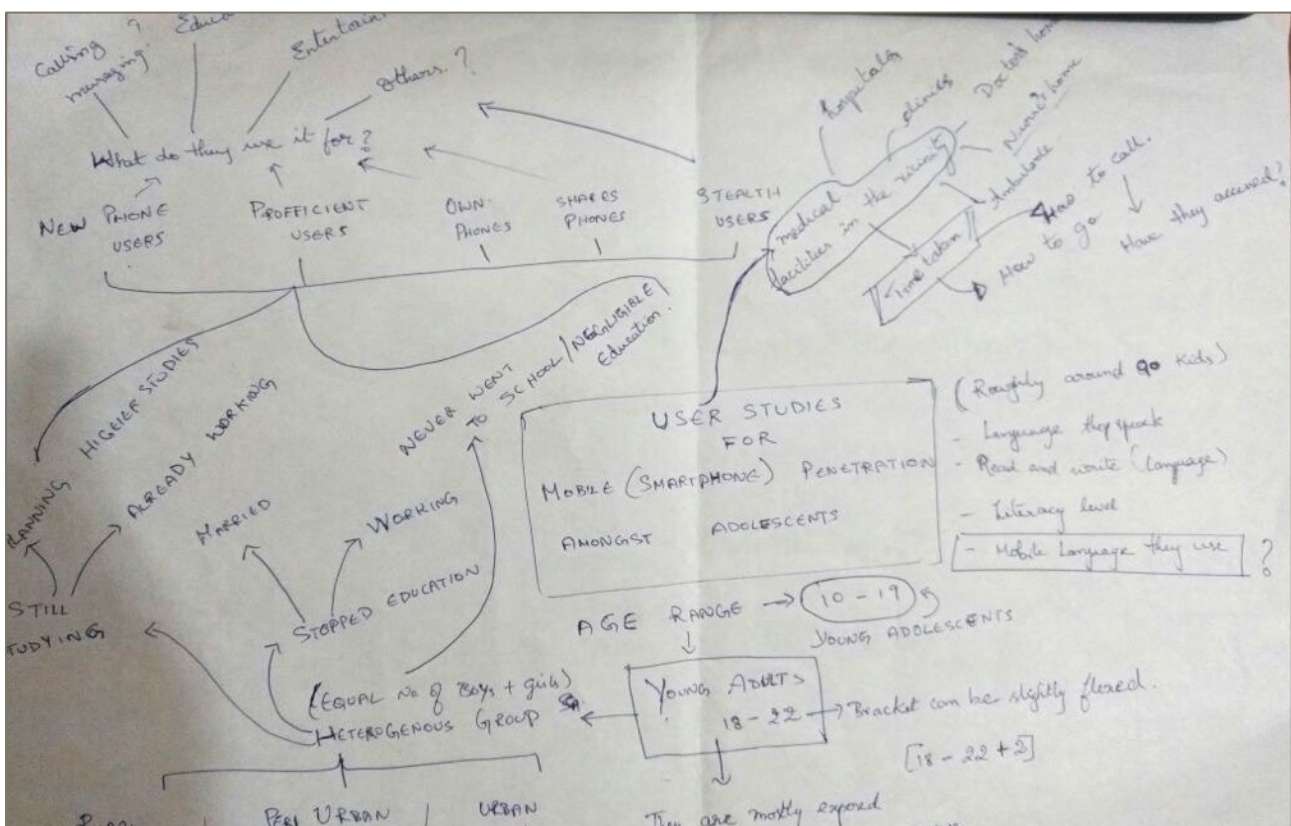 Calling ?
messaging.
Educa
Entertain
Others ?
What do they use it for?
NEW PHONE
USERS
PROFFICIENT
USERS
OWN
PHONES
SHARES
PHONES
STEALTH
USERS
hospitals
clinics
Doctor's home
Nurse's home
Ambulance
medical
facilities in the vicinity
Time taken
How to call.
How to go
Have they accessed?
PLANNING HIGHER STUDIES
ALREADY WORKING
STILL
STUDYING
MARRIED
WORKING
STOPPED EDUCATION
NEVER WENT
TO SCHOOL/NEGLIGIBLE
Education.
USER STUDIES
FOR
MOBILE (SMARTPHONE) PENETRATION
AMONGST ADOLESCENTS
(Roughly around 90 kids)
- Language they speak
- Read and write (language)
- Literacy level
- Mobile Language they use ?
AGE RANGE → (10 - 19)
YOUNG ADOLESCENTS
YOUNG ADULTS
18 - 22 → Bracket can be slightly flexed.
[18 - 22 + 2]
(EQUAL No of Boys + girls)
HETEROGENOUS GROUP
PERI URBAN
URBAN
They are mostly exposed